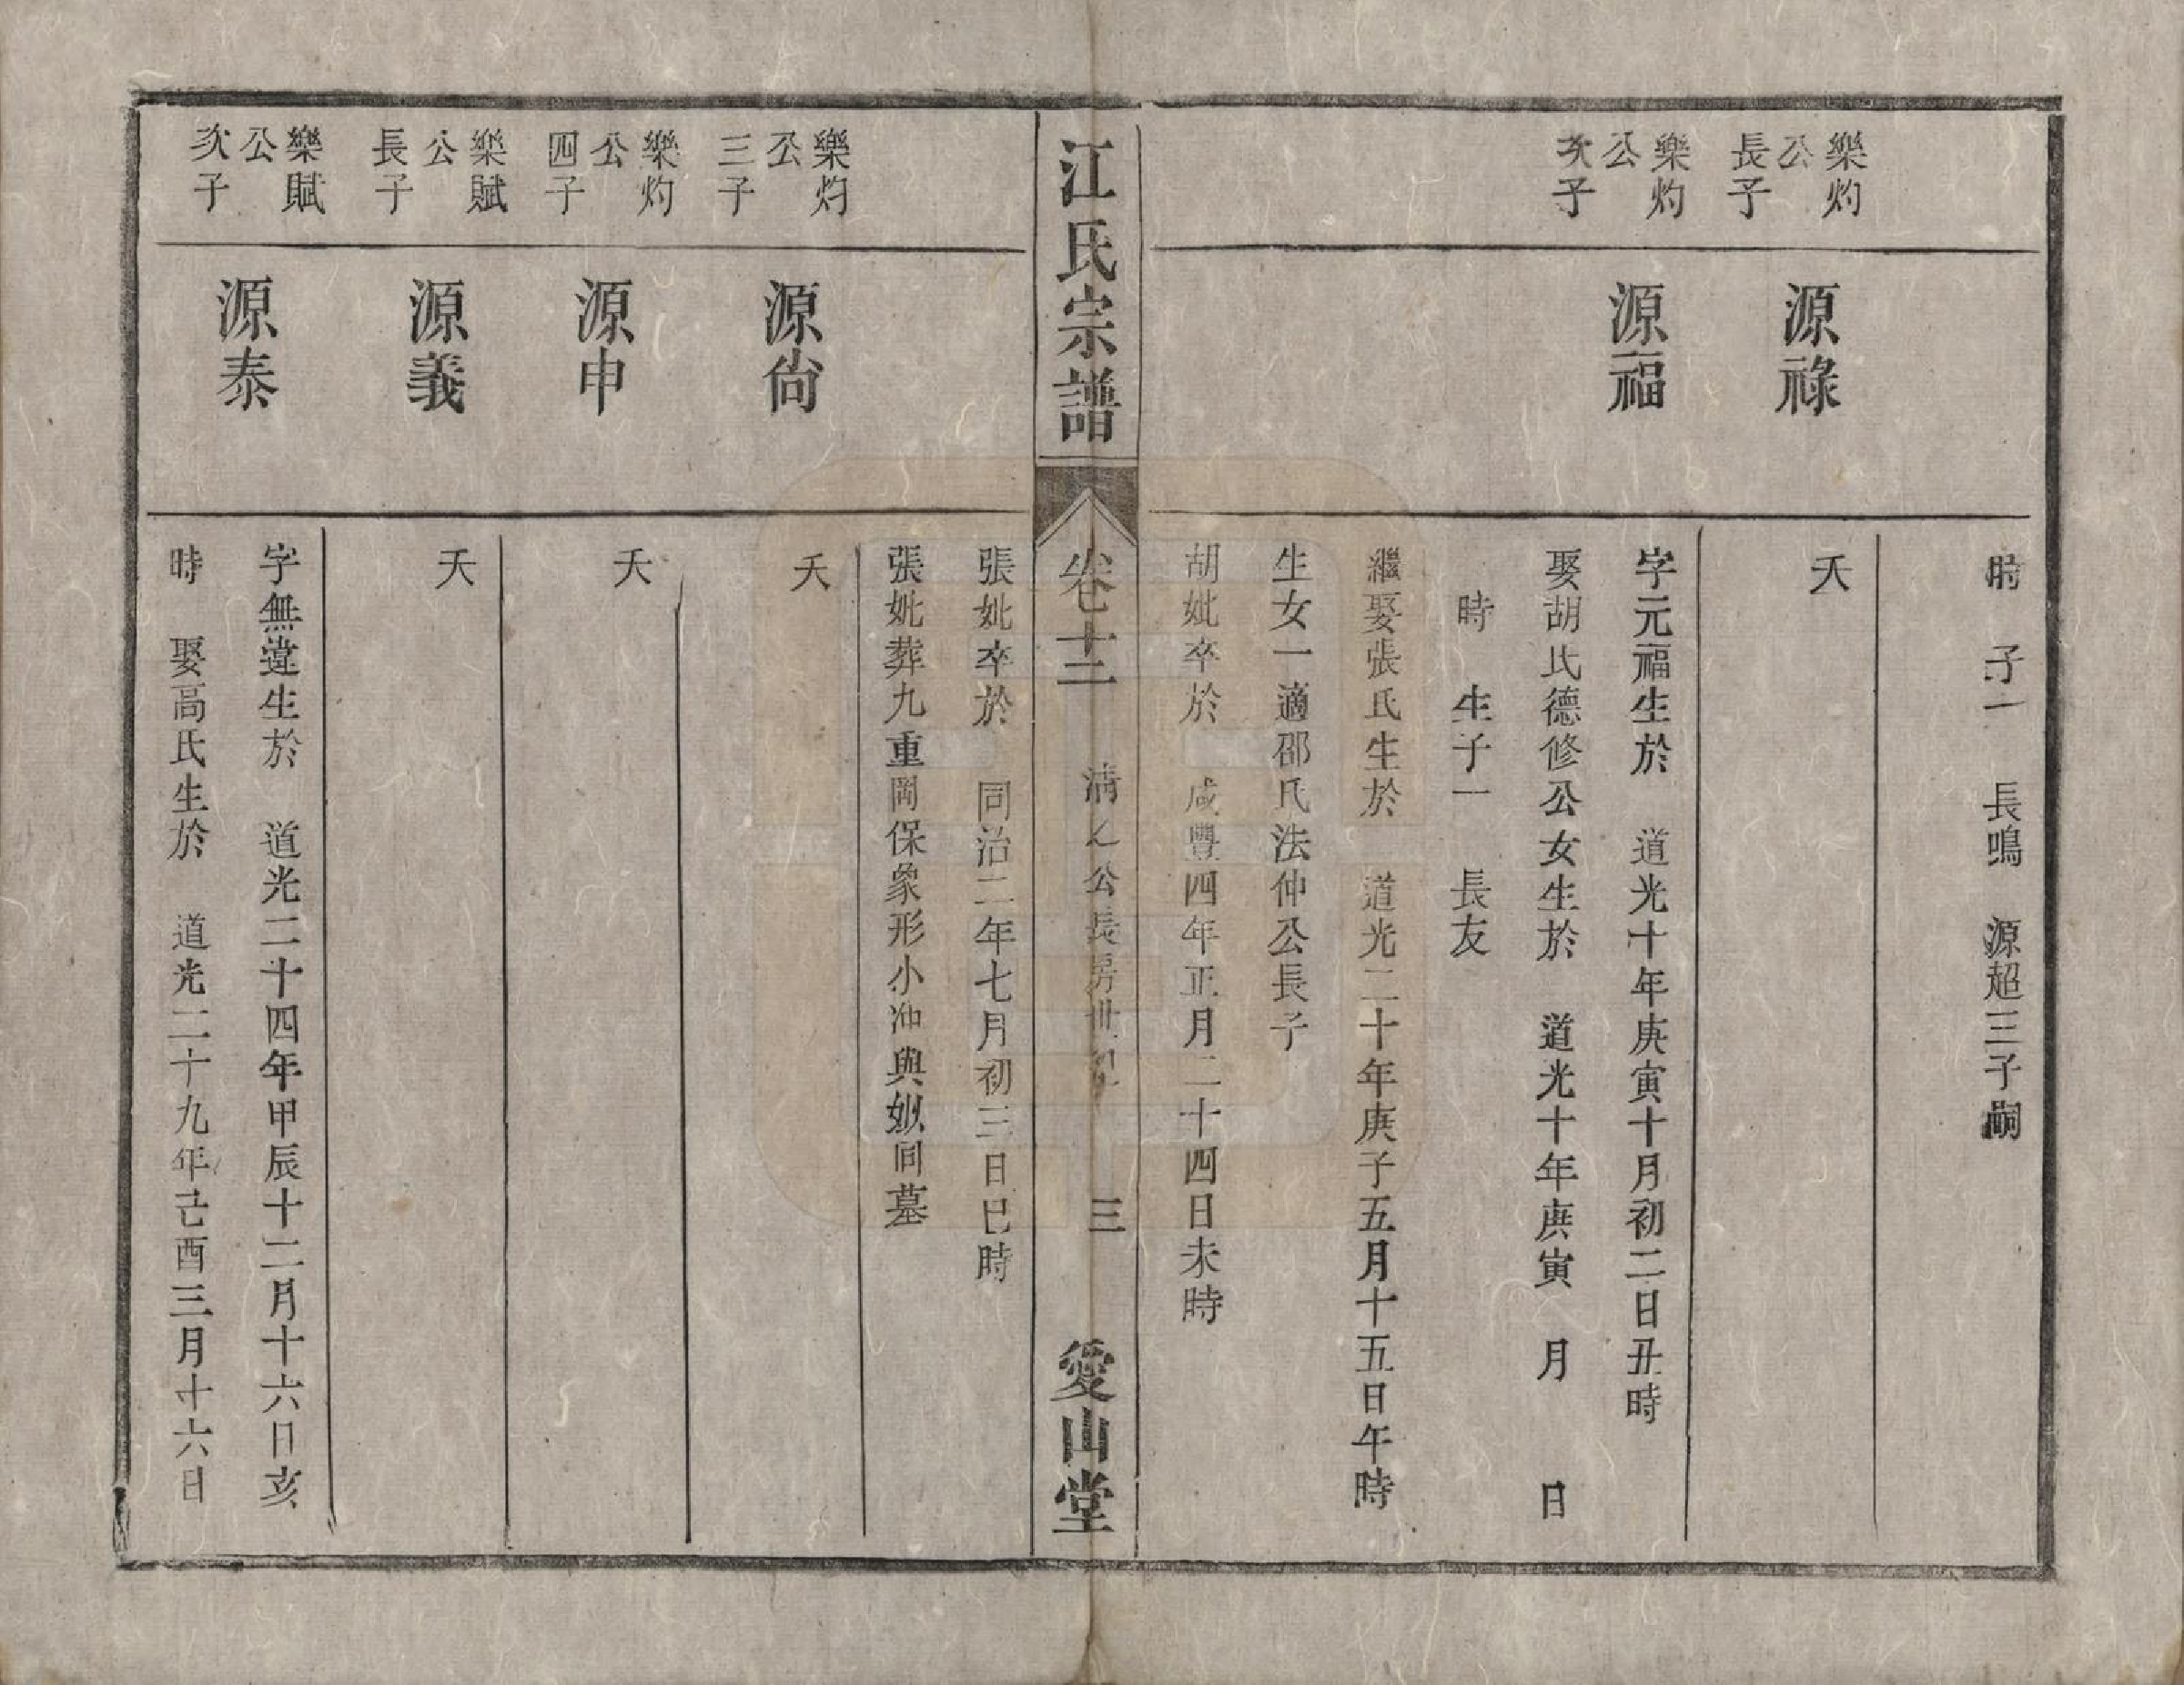 時　子一　長鳴　源超三子嗣
樂灼
公
長子
源祿
夭
樂灼
公
次子
源福
字元福生於　道光十年庚寅十月初二日丑時
娶胡氏德修公女生於　道光十年庚寅　月　　日
時　生子一　長友
繼娶張氏生於　道光二十年庚子五月十五日午時
生女一適邵氏法仲公長子
胡妣卒於　咸豐四年正月二十四日未時
江氏宗譜
卷十二　清　公長房世　　三
愛山堂
張妣卒於　同治二年七月初三日巳時
張妣葬九重岡保象形小沖與　同墓
樂灼
公
三子
源尙
夭
樂灼
公
四子
源申
夭
樂賦
公
長子
源義
夭
樂賦
公
次子
源泰
字無違生於　道光二十四年甲辰十二月十六日亥
時　娶高氏生於　道光二十九年己酉三月十六日